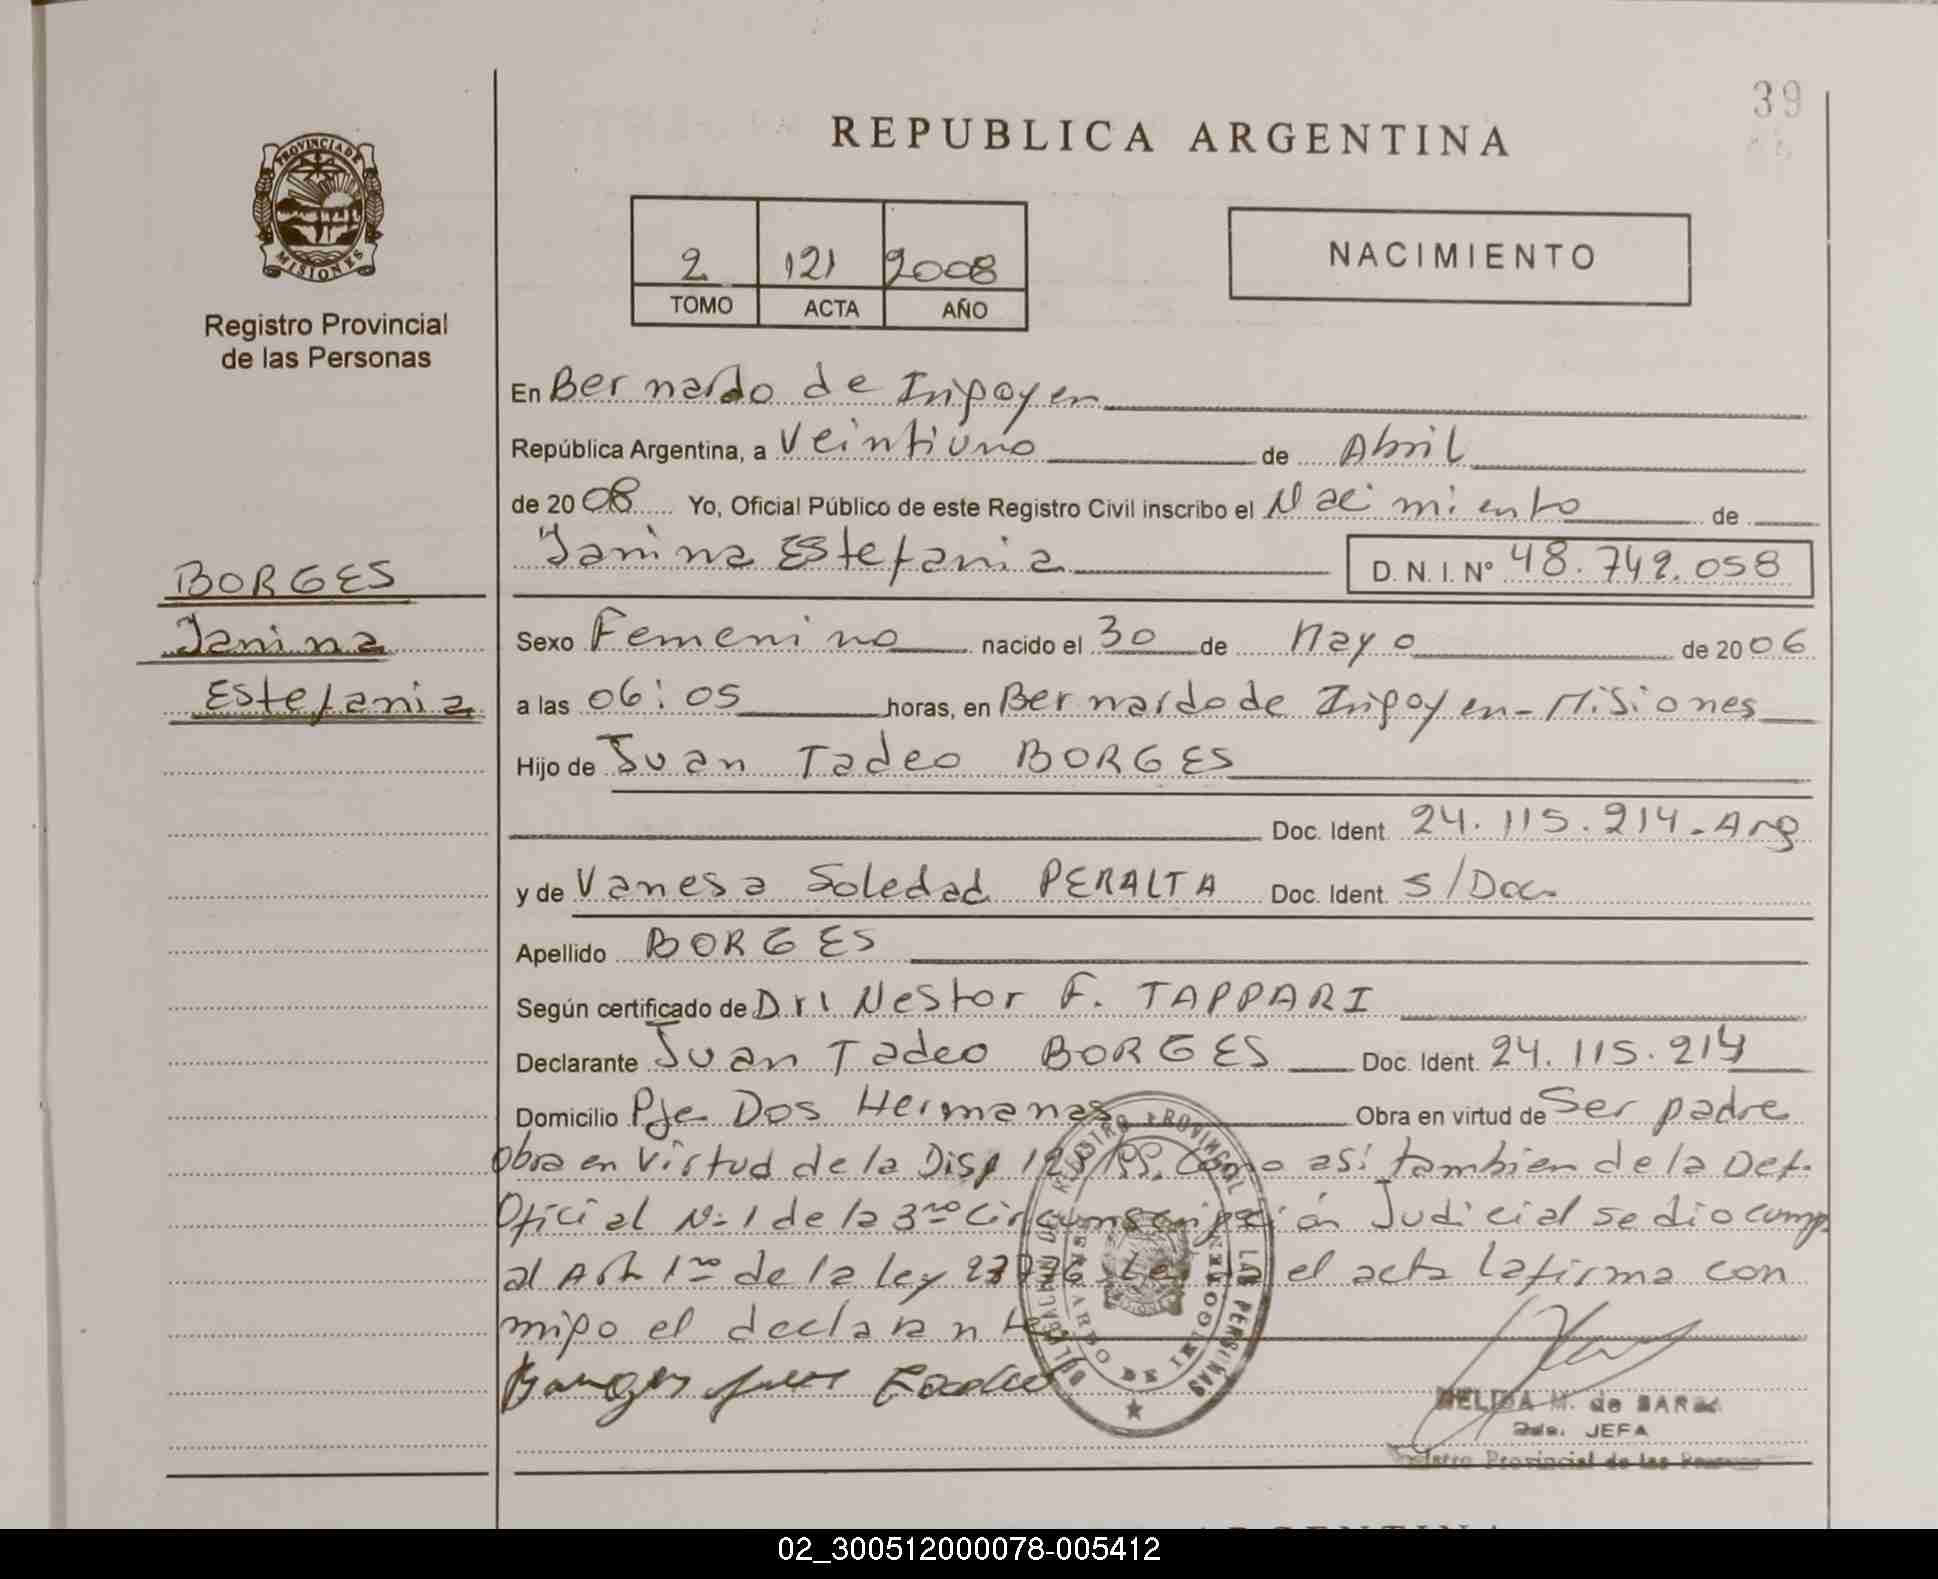 39
REPUBLICA ARGENTINA
PROVINCIA DE
MISIONES
Registro Provincial
de las Personas
2 121 2008
TOMO ACTA AÑO
NACIMIENTO
En Bernardo de Irigoyen
República Argentina, a Veintiuno de Abril
de 2008 Yo, Oficial Público de este Registro Civil inscribo el Nacimiento de
Janina Estefania D. N. I. N° 48.742.058
BORGES
Janina
Estefania
Sexo Femenino nacido el 30 de Mayo de 2006
a las 06:05 horas, en Bernardo de Irigoyen - Misiones
Hijo de Juan Tadeo BORGES
Doc. Ident. 24.115.214 - Arg
y de Vanesa Soledad PERALTA Doc. Ident. S/Doc.
Apellido BORGES
Según certificado de Dr: Nestor F. TAPPARI
Declarante Juan Tadeo BORGES Doc. Ident. 24.115.214
Domicilio Pje Dos Hermanas Obra en virtud de Ser padre
Obra en virtud de la Disp como asi tambien de la Def.
Oficial N° 1 de la 3ra Circunscripción Judicial se dio cump.
al Art 1ro de la ley el acta la firma con
migo el declarante
Borges Juan Tadeo
DELEGACION DEL REGISTRO PROVINCIAL DE LAS PERSONAS
BERNARDO DE IRIGOYEN
M. de
JEFA
Registro Provincial de las Personas
ARGENTINA
02_300512000078-005412